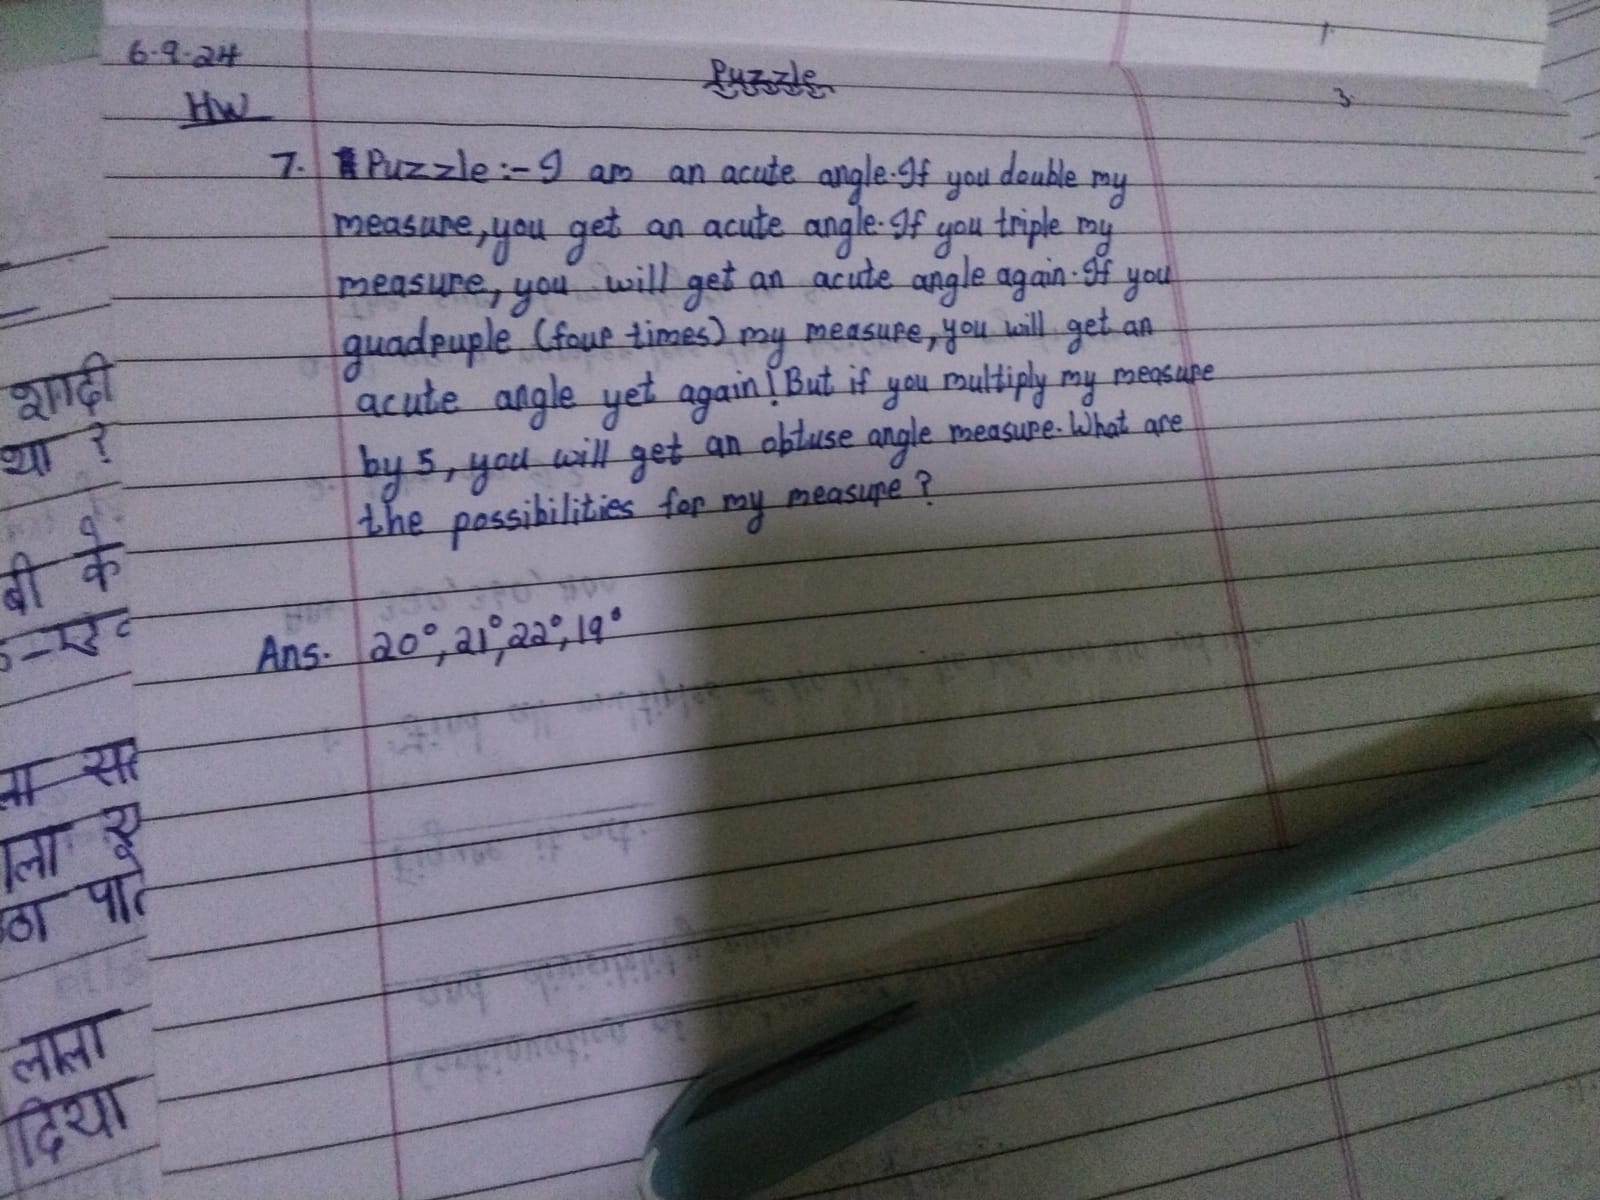 6.9.24
Puzzle
HW
3.
7. Puzzle :- I am an acute angle. If you double my
measure, you get an acute angle. If you triple my
measure, you will get an acute angle again. If you
quadruple (four times) my measure, you will get an
acute angle yet again! But if you multiply my measure
by 5, you will get an obtuse angle measure. What are
the possibilities for my measure?
Ans. 20°, 21°, 22°, 19°
शादी
था ?
बी के
ला
पात
लाला
दिया